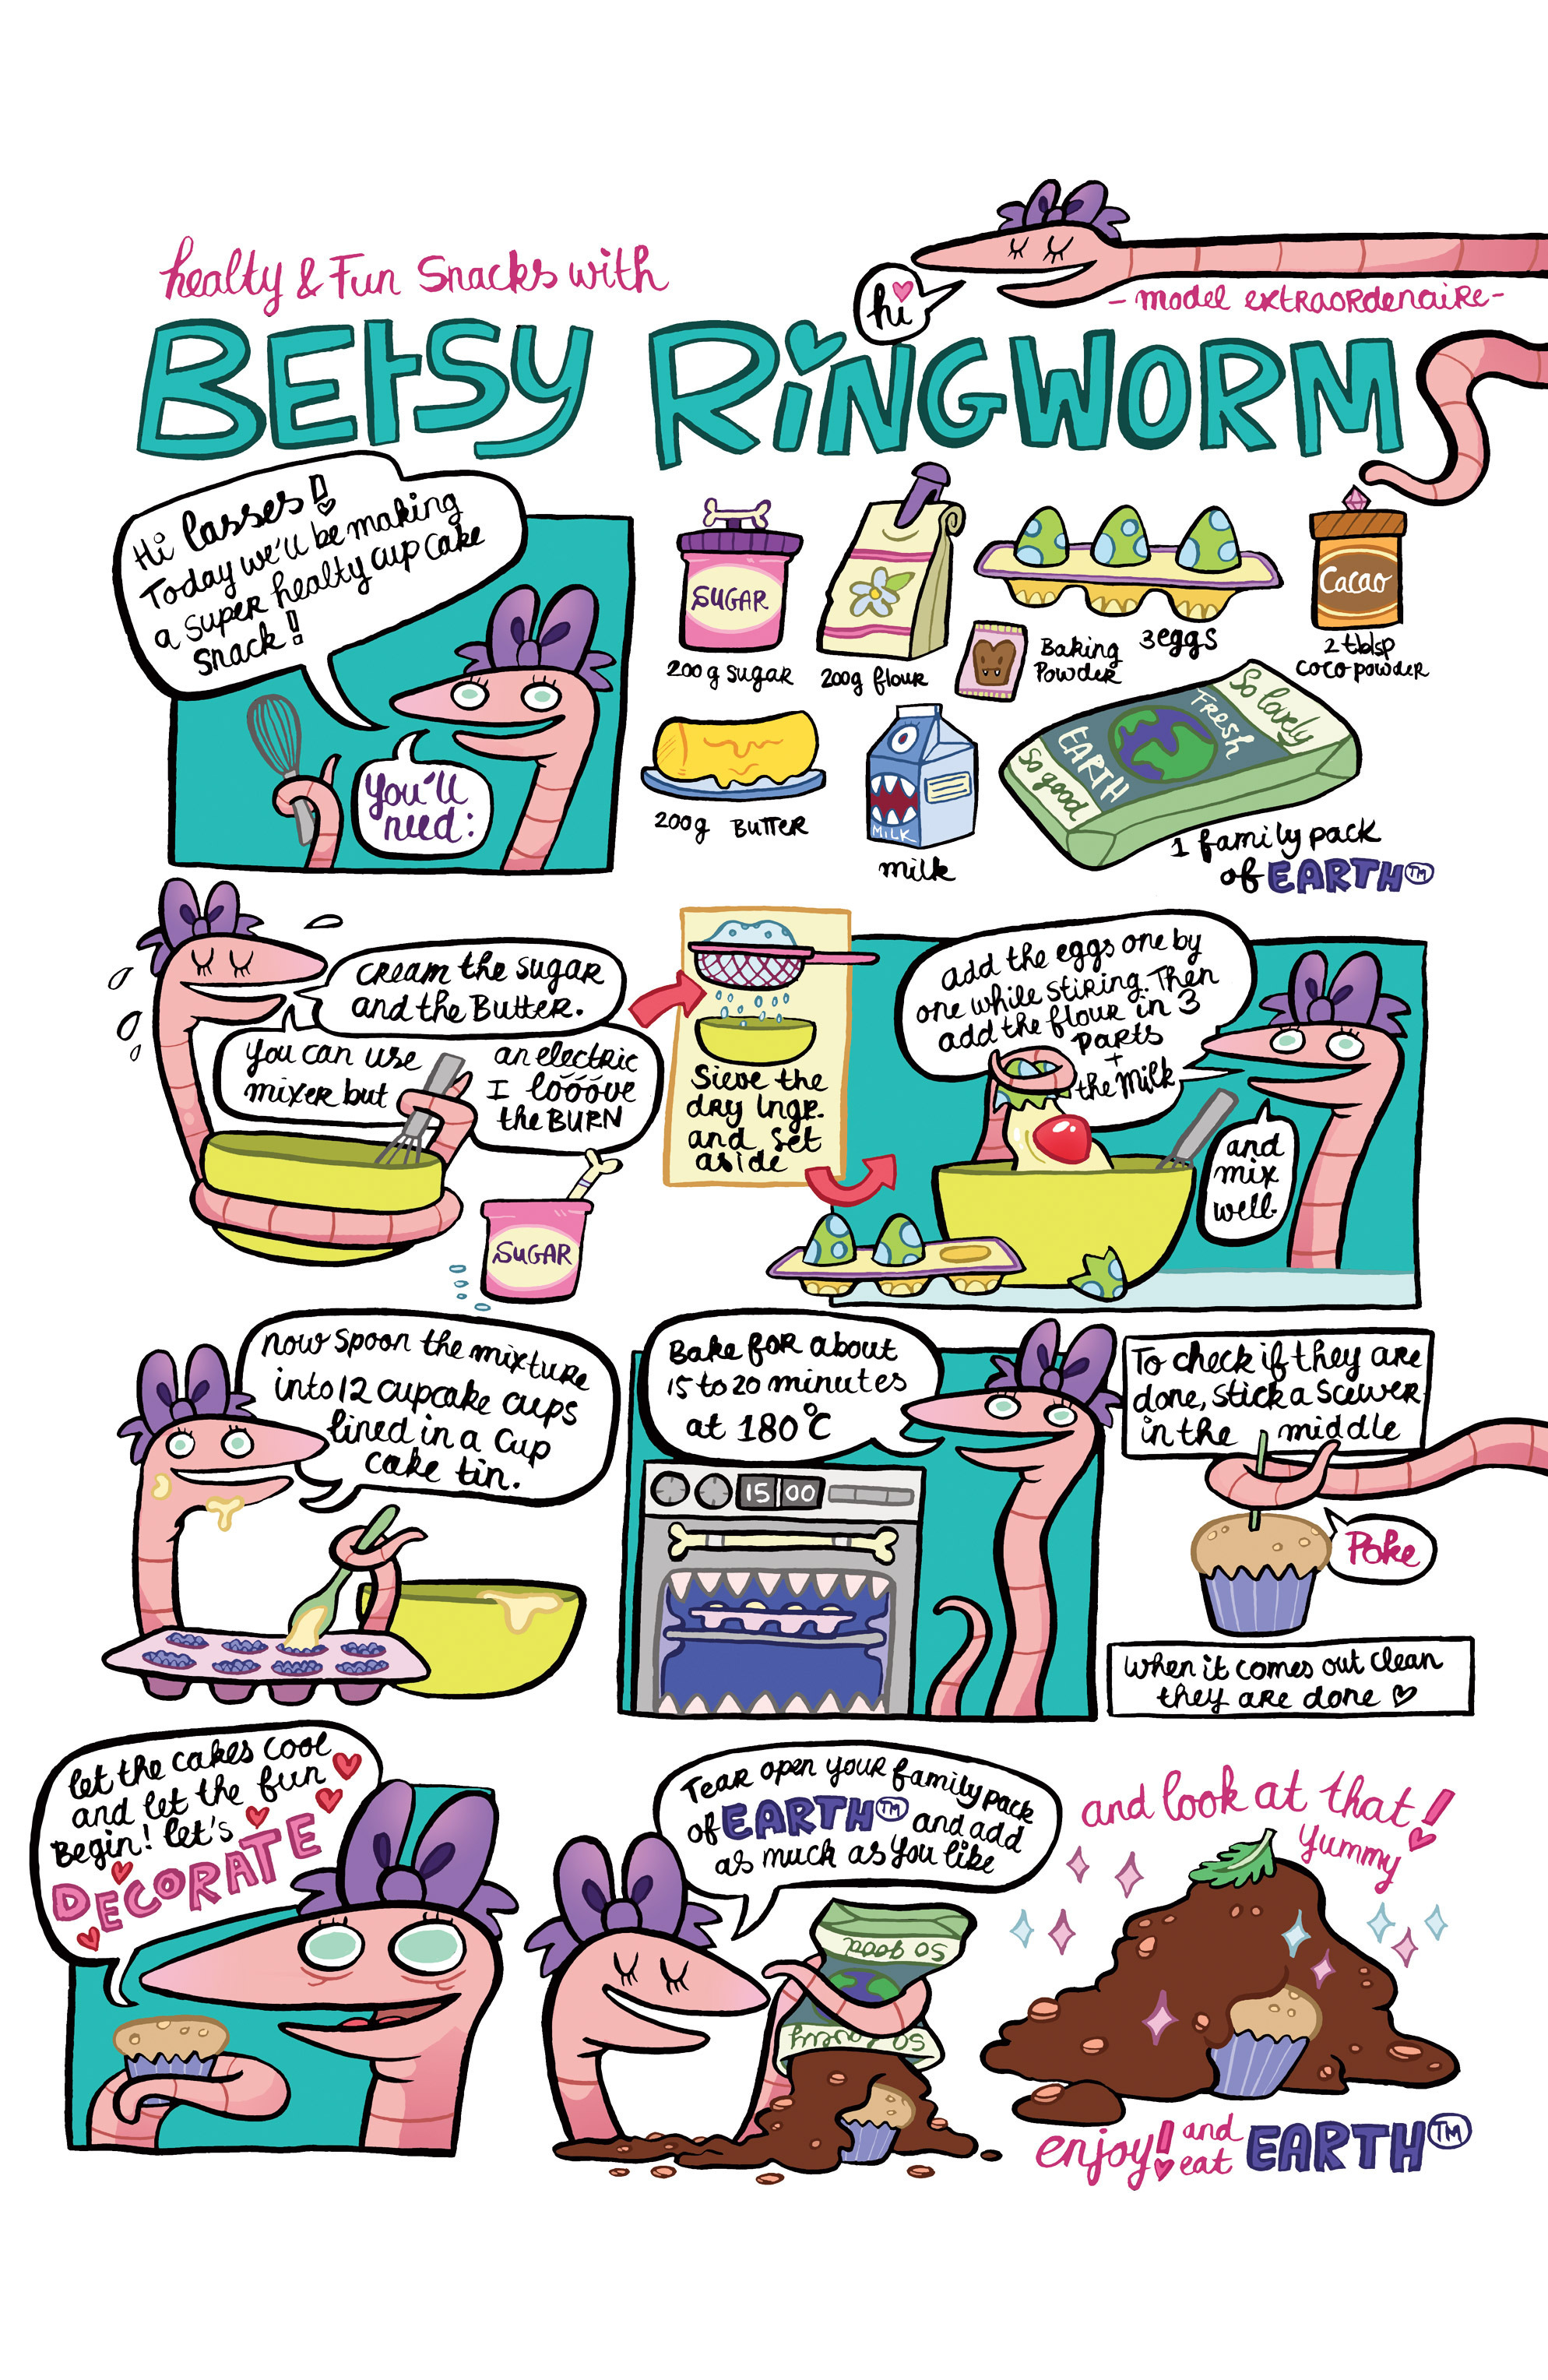 healty & Fun Snacks with
hi
- model extraordenaire -
BETSY RiNGWORM
Hi lasses!
Today we'll be making
a super healty cup cake
snack!
You'll
need:
SUGAR
200g sugar
200g flour
Baking
Powder
3 eggs
Cacao
2 tblsp
coco powder
200g Butter
MILK
milk
So lovely
FResh
EARTH
So good
1 family pack
of EARTH™
cream the sugar
and the Butter.
You can use an electric
mixer but I lööööve
the BURN
SUGAR
Sieve the
dry Ingr.
and set
aside
add the eggs one by
one while stiring. Then
add the flour in 3
parts
+
the milk
and
mix
well.
now spoon the mixture
into 12 cupcake cups
lined in a cup
cake tin.
Bake for about
15 to 20 minutes
at 180°C
15 00
To check if they are
done, stick a scewer
in the middle
Poke
when it comes out clean
they are done
let the cakes cool
and let the fun
Begin! let's
DECORATE
Tear open your family pack
of EARTH™ and add
as much as you like
So good
So lovely
and look at that!
Yummy
enjoy! and
eat EARTH™